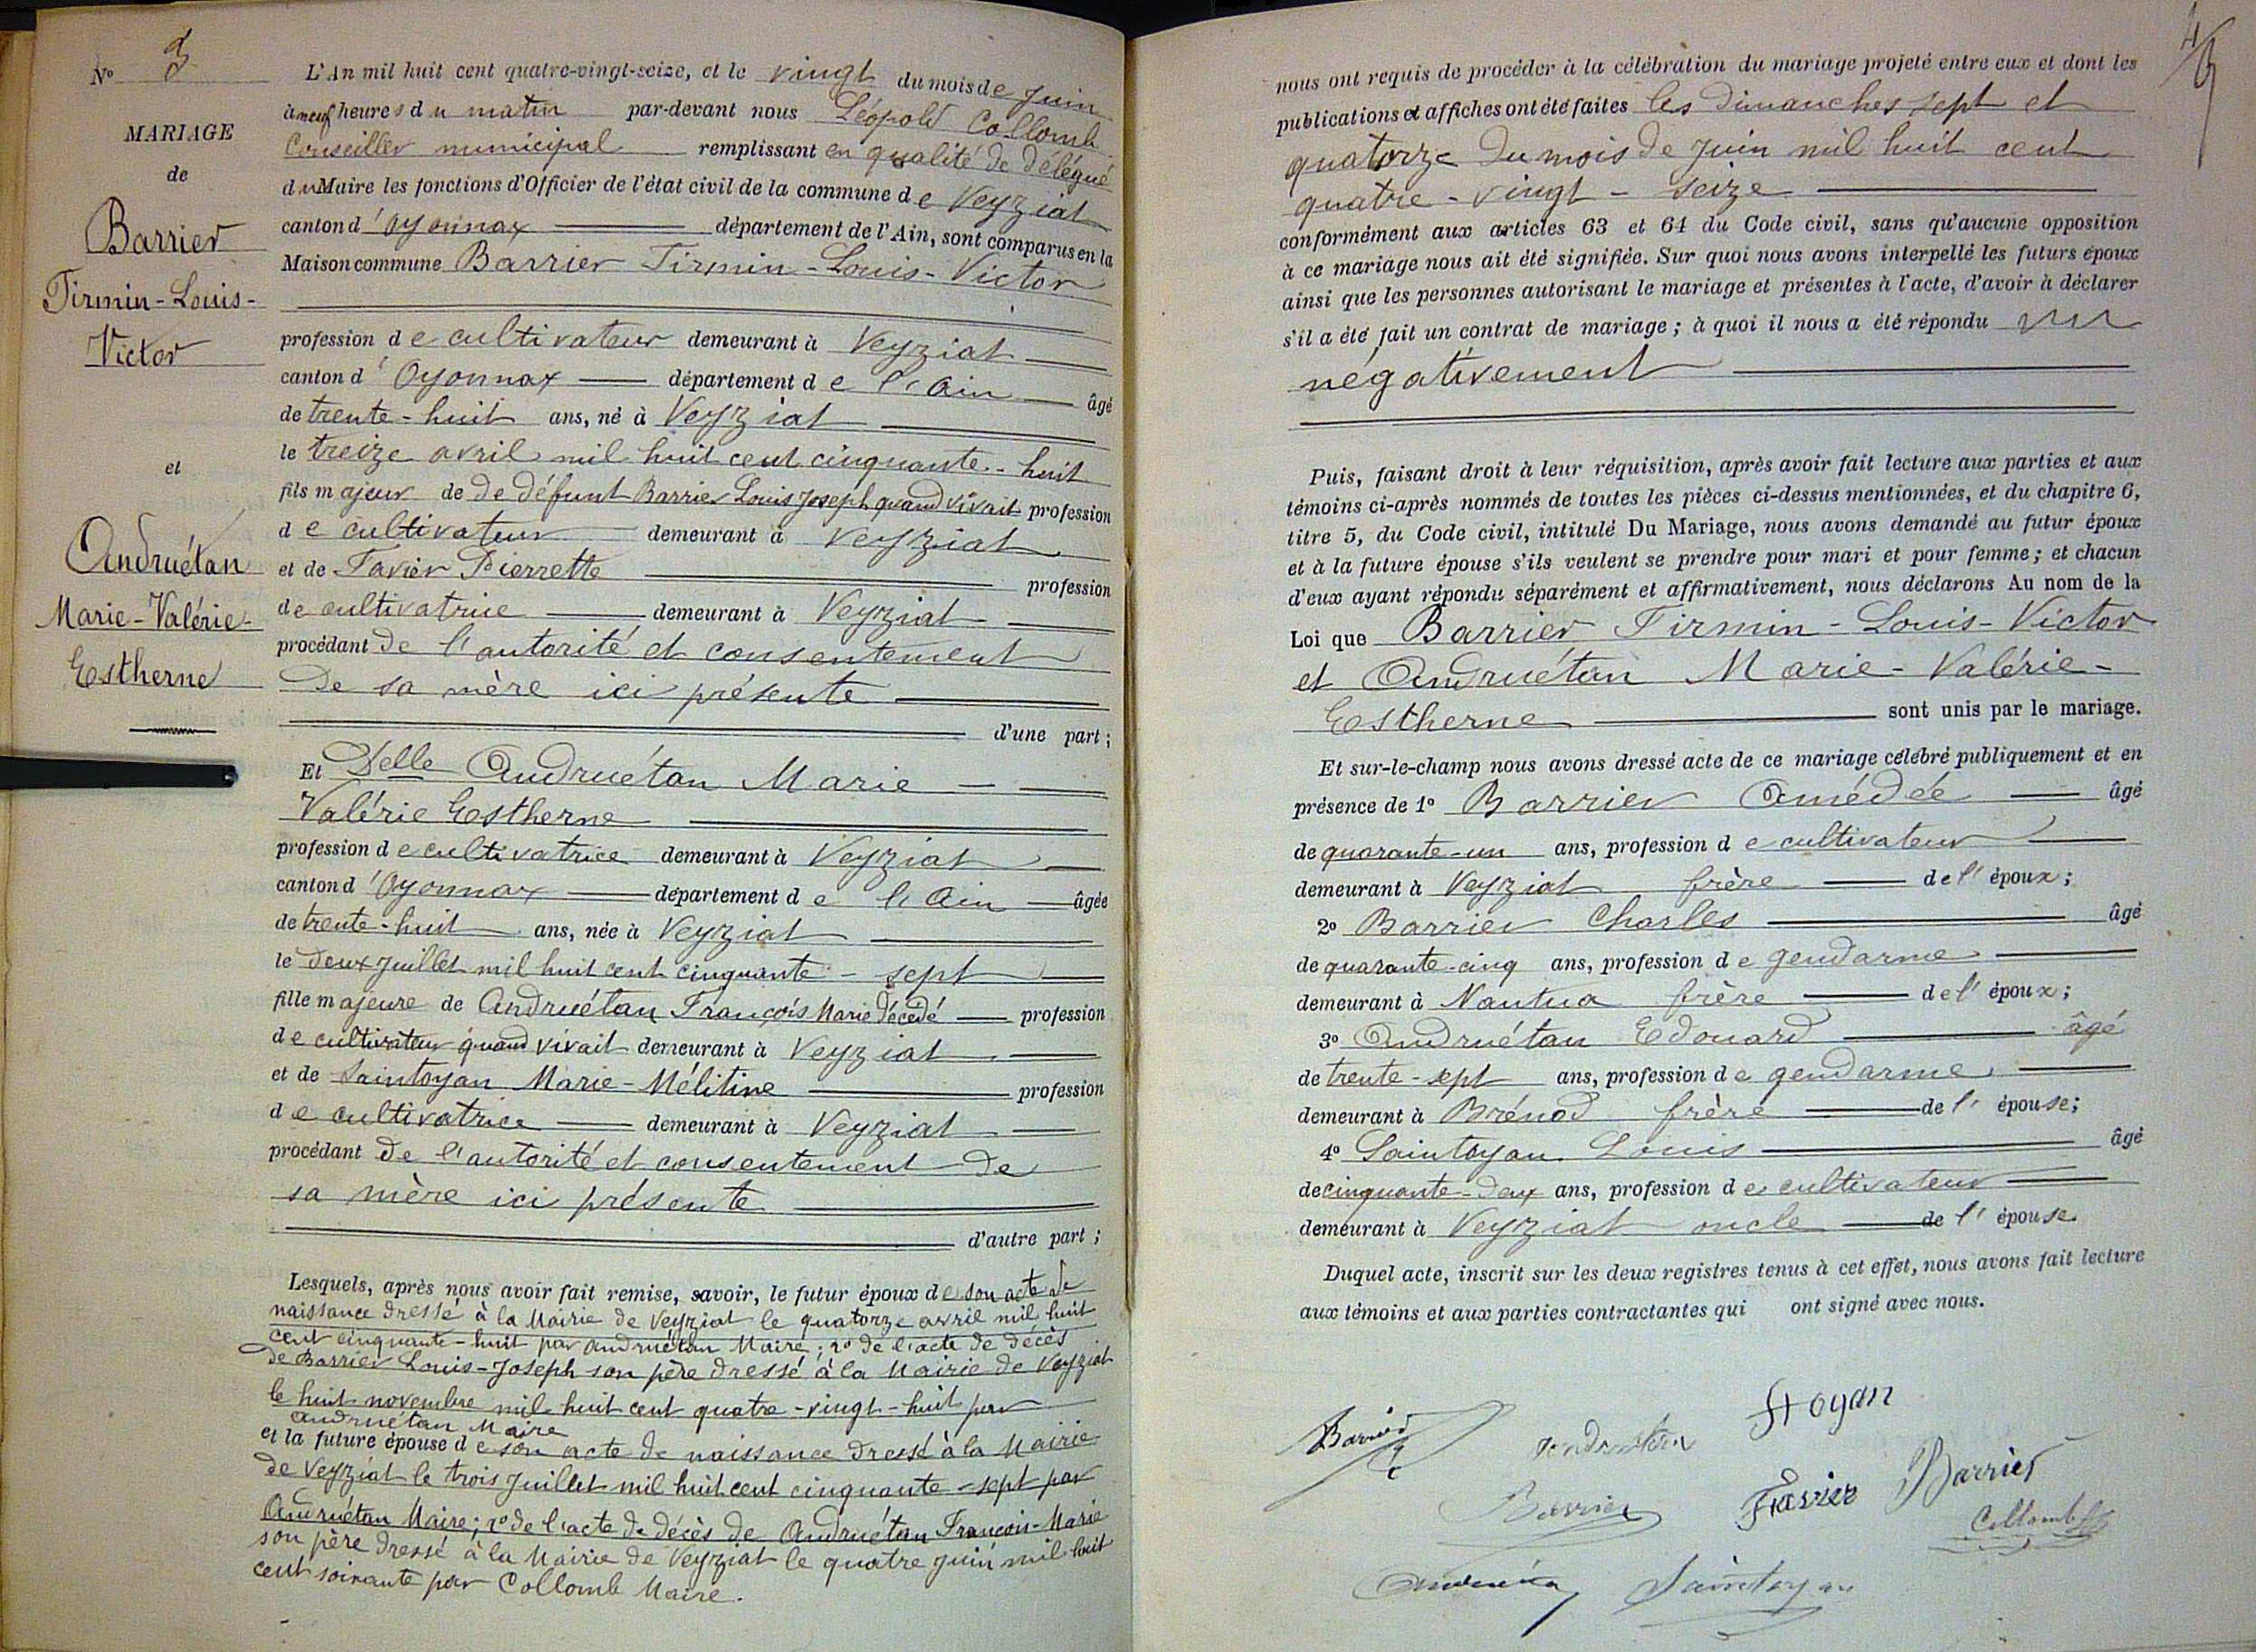 N° 3
MARIAGE
de
Barrier
Firmin-Louis-
Victor
et
Andruétan
Marie-Valérie-
Estherne
L'An mil huit cent quatre-vingt-seize, et le vingt du mois de Juin
à neuf heures du matin par-devant nous Léopold Collomb
Conseiller municipal remplissant en qualité de délégué
du Maire les fonctions d'Officier de l'état civil de la commune de Veyziat
canton d'Oyonnax département de l'Ain, sont comparus en la
Maison commune Barrier Firmin-Louis-Victor
profession de cultivateur demeurant à Veyziat
canton d'Oyonnax département de l'Ain âgé
de trente-huit ans, né à Veyziat
le treize avril mil huit cent cinquante-huit
fils majeur de de défunt Barrier Louis Joseph quand vivait profession
de cultivateur demeurant à Veyziat
et de Favier Pierrette profession
de cultivatrice demeurant à Veyziat
procédant de l'autorité et consentement
de sa mère ici présente
d'une part;
Et Delle Andruétan Marie
Valérie Estherne
profession de cultivatrice demeurant à Veyziat
canton d'Oyonnax département de l'Ain âgée
de trente-huit ans, née à Veyziat
le deux Juillet mil huit cent cinquante-sept
fille majeure de Andruétan François Marie décédé profession
de cultivateur quand vivait demeurant à Veyziat
et de Saintoyan Marie-Mélitine profession
de cultivatrice demeurant à Veyziat
procédant de l'autorité et consentement de
sa mère ici présente
d'autre part;
Lesquels, après nous avoir fait remise, savoir, le futur époux de son acte de
naissance dressé à la Mairie de Veyziat le quatorze avril mil huit
cent cinquante-huit par Andruétan Maire; 2° de l'acte de décès
de Barrier Louis-Joseph son père dressé à la Mairie de Veyziat
le huit novembre mil huit cent quatre-vingt-huit par
Andruétan Maire
et la future épouse de son acte de naissance dressé à la Mairie
de Veyziat le trois Juillet mil huit cent cinquante-sept par
Andruétan Maire; 2° de l'acte de décès de Andruétan François-Marie
son père dressé à la Mairie de Veyziat le quatre Juin mil huit
cent soixante par Collomb Maire.
nous ont requis de procéder à la célébration du mariage projeté entre eux et dont les
publications et affiches ont été faites les Dimanches sept et
quatorze du mois de Juin mil huit cent
quatre-vingt-seize
conformément aux articles 63 et 64 du Code civil, sans qu'aucune opposition
à ce mariage nous ait été signifiée. Sur quoi nous avons interpellé les futurs époux
ainsi que les personnes autorisant le mariage et présentes à l'acte, d'avoir à déclarer
s'il a été fait un contrat de mariage; à quoi il nous a été répondu
négativement
Puis, faisant droit à leur réquisition, après avoir fait lecture aux parties et aux
témoins ci-après nommés de toutes les pièces ci-dessus mentionnées, et du chapitre 6,
titre 5, du Code civil, intitulé Du Mariage, nous avons demandé au futur époux
et à la future épouse s'ils veulent se prendre pour mari et pour femme; et chacun
d'eux ayant répondu séparément et affirmativement, nous déclarons Au nom de la
Loi que Barrier Firmin-Louis-Victor
et Andruétan Marie-Valérie-
Estherne sont unis par le mariage.
Et sur-le-champ nous avons dressé acte de ce mariage célébré publiquement et en
présence de 1° Barrier Amédée âgé
de quarante-un ans, profession de cultivateur
demeurant à Veyziat frère de l'époux;
2° Barrier Charles âgé
de quarante-cinq ans, profession de gendarme
demeurant à Nantua frère de l'époux;
3° Andruétan Edouard âgé
de trente-sept ans, profession de gendarme
demeurant à Brénod frère de l'épouse;
4° Saintoyan Louis âgé
de cinquante-deux ans, profession de cultivateur
demeurant à Veyziat oncle de l'épouse.
Duquel acte, inscrit sur les deux registres tenus à cet effet, nous avons fait lecture
aux témoins et aux parties contractantes qui ont signé avec nous.
Stoyan
Barrier
Barrier Favier Barrier
Collomb
Saintoyan